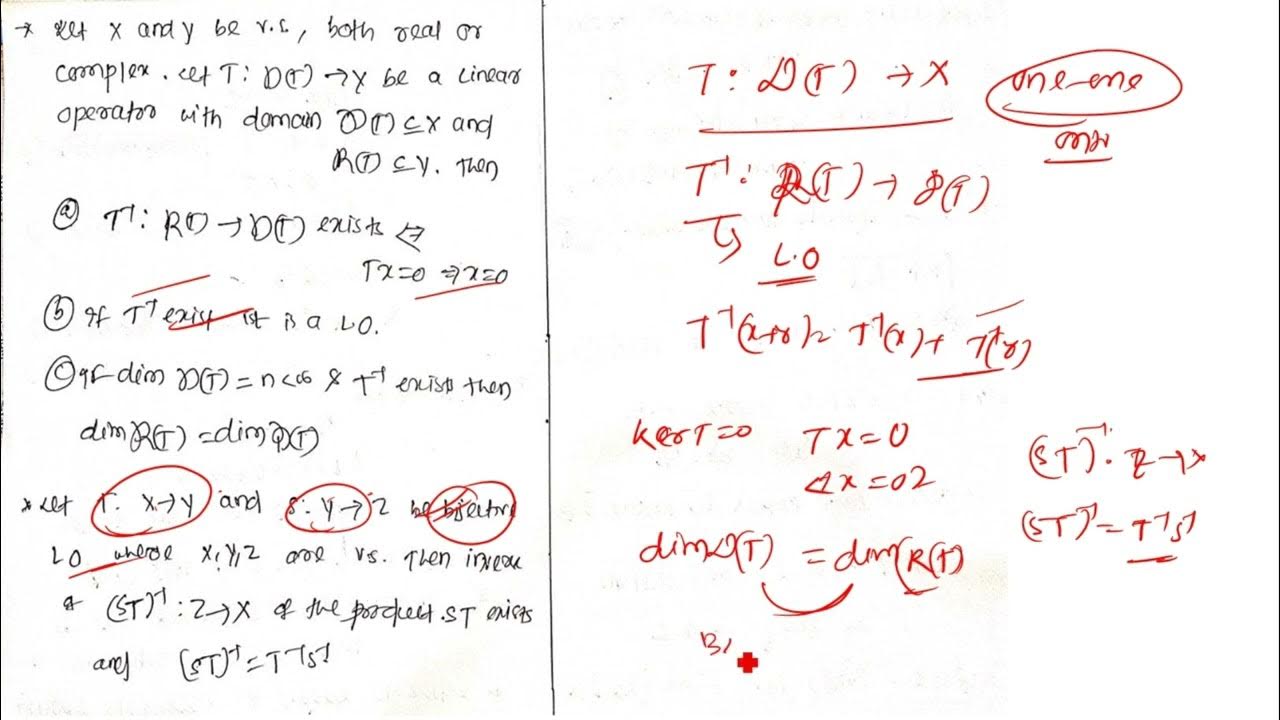 → Let X and y be v.s, both real or
complex. Let T: D(T) → Y be a Linear
operator with domain D(T) ⊆ X and
R(T) ⊆ Y. then
ⓐ T⁻¹: R(T) → D(T) exists ⇔
Tx=0 ⇒ x=0
ⓑ If T⁻¹ exist is a LO.
ⓒ If dim D(T) = n < ∞ & T⁻¹ exists then
dim R(T) = dim D(T)
* Let T: X→Y and S: Y→Z be bijective
LO where X, Y, Z are vs. Then inverse
(ST)⁻¹: Z→X of the product ST exists
and (ST)⁻¹ = T⁻¹S⁻¹
T: D(T) → X one-one
T⁻¹: R(T) → D(T)
L.O
T⁻¹(x+y) = T⁻¹(x) + T⁻¹(y)
Ker T=0 Tx=0
(ST)⁻¹: Z→X
dim D(T) = dim(R(T))
(ST)⁻¹ = T⁻¹S⁻¹